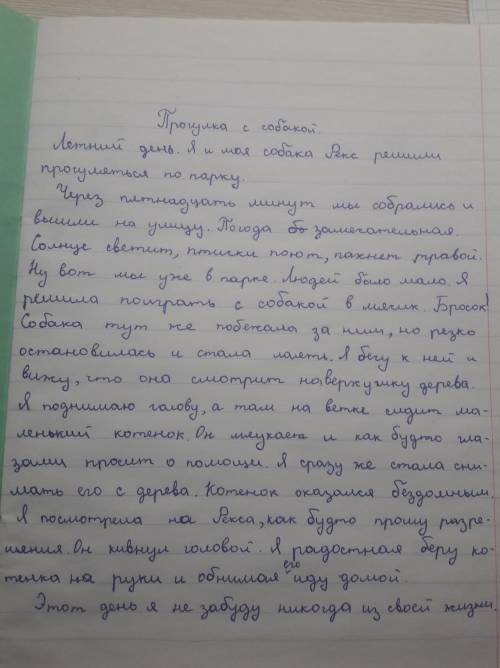 Прогулка с собакой.
Летний день. Я и моя собака Рекс решили
прогуляться по парку.
Через пятнадцать минут мы собрались и
вышли на улицу. Погода замечательная.
Солнце светит, птички поют, пахнет травой.
Ну вот мы уже в парке. Людей было мало. Я
решила поиграть с собакой в мячик. Бросок!
Собака тут же побежала за ним, но резко
остановилась и стала лаять. Я бегу к ней и
вижу, что она смотрит на верхушку дерева.
Я поднимаю голову, а там на ветке сидит ма-
ленький котенок. Он мяукает и как будто гла-
зами просит о помощи. Я сразу же стала сни-
мать его с дерева. Котенок оказался бездомным.
Я посмотрела на Рекса, как будто прошу разре-
шения. Он кивнул головой. Я радостная беру ко-
тенка на руки и обнимая его иду домой.
Этот день я не забуду никогда из своей жизни.